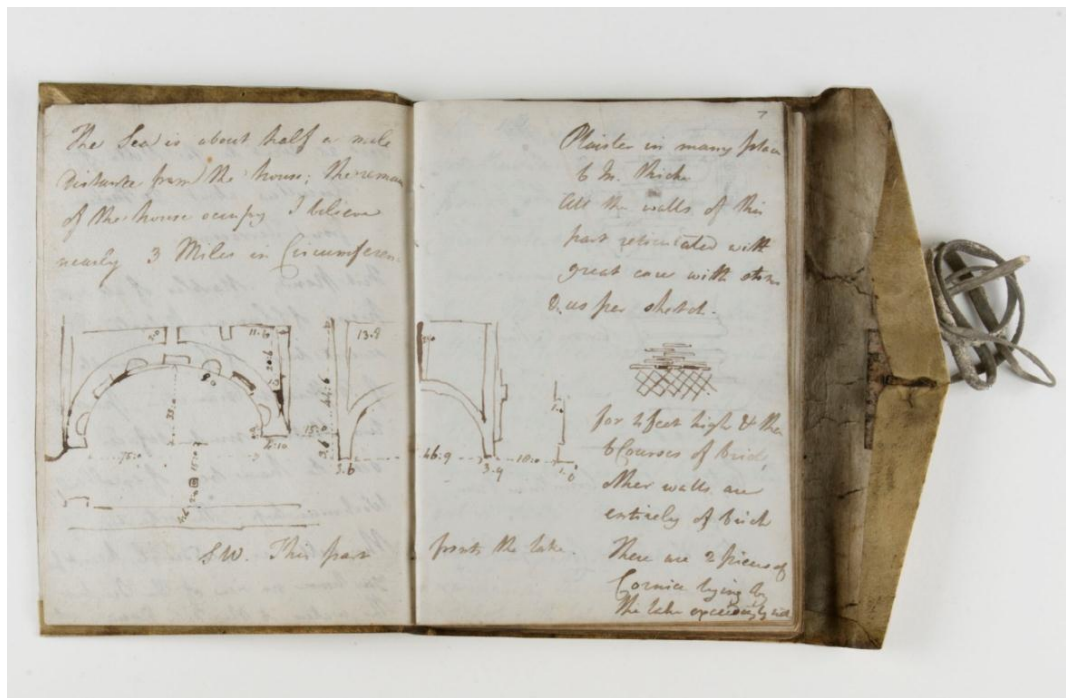 The Sea is about half a mile
Distance from the house; the remains
of the house occupy I believe
nearly 3 Miles in Circumferen
11.6
20.6
33.
75.0
15.0
13.9
44.6
15.
3.6
3.6
46.9
3.9
18.0
1.0
S.W. This part fronts the lake.
7
Plaister in many places
6 In. thick
All the walls of this
part reticulated with
great care with stone
& as per sketch.
for 4 feet high & then
6 Courses of Brick,
other walls are
entirely of Brick
There are 2 pieces of
Cornice lying by
the lake exceedingly rich